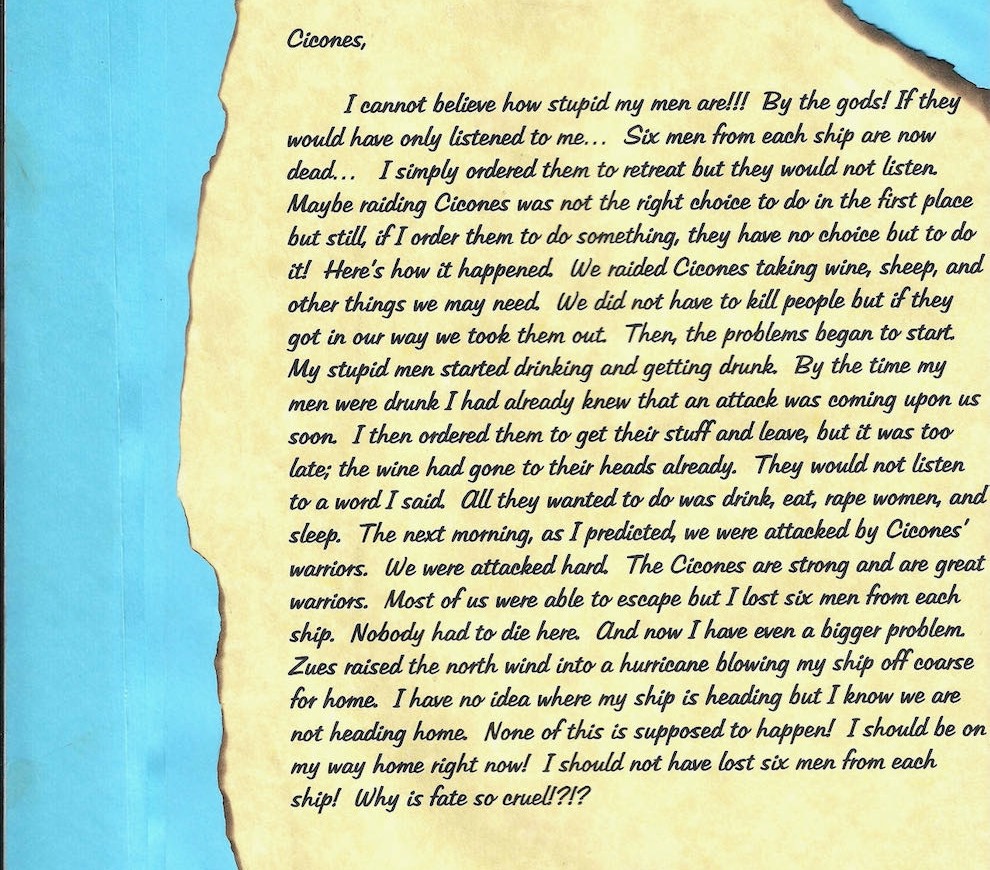 Cicones,
I cannot believe how stupid my men are!!! By the gods! If they
would have only listened to me... Six men from each ship are now
dead... I simply ordered them to retreat but they would not listen.
Maybe raiding Cicones was not the right choice to do in the first place
but still, if I order them to do something, they have no choice but to do
it! Here's how it happened. We raided Cicones taking wine, sheep, and
other things we may need. We did not have to kill people but if they
got in our way we took them out. Then, the problems began to start.
My stupid men started drinking and getting drunk. By the time my
men were drunk I had already knew that an attack was coming upon us
soon. I then ordered them to get their stuff and leave, but it was too
late; the wine had gone to their heads already. They would not listen
to a word I said. All they wanted to do was drink, eat, rape women, and
sleep. The next morning, as I predicted, we were attacked by Cicones'
warriors. We were attacked hard. The Cicones are strong and are great
warriors. Most of us were able to escape but I lost six men from each
ship. Nobody had to die here. And now I have even a bigger problem.
Zues raised the north wind into a hurricane blowing my ship off coarse
for home. I have no idea where my ship is heading but I know we are
not heading home. None of this is supposed to happen! I should be on
my way home right now! I should not have lost six men from each
ship! Why is fate so cruel!?!?